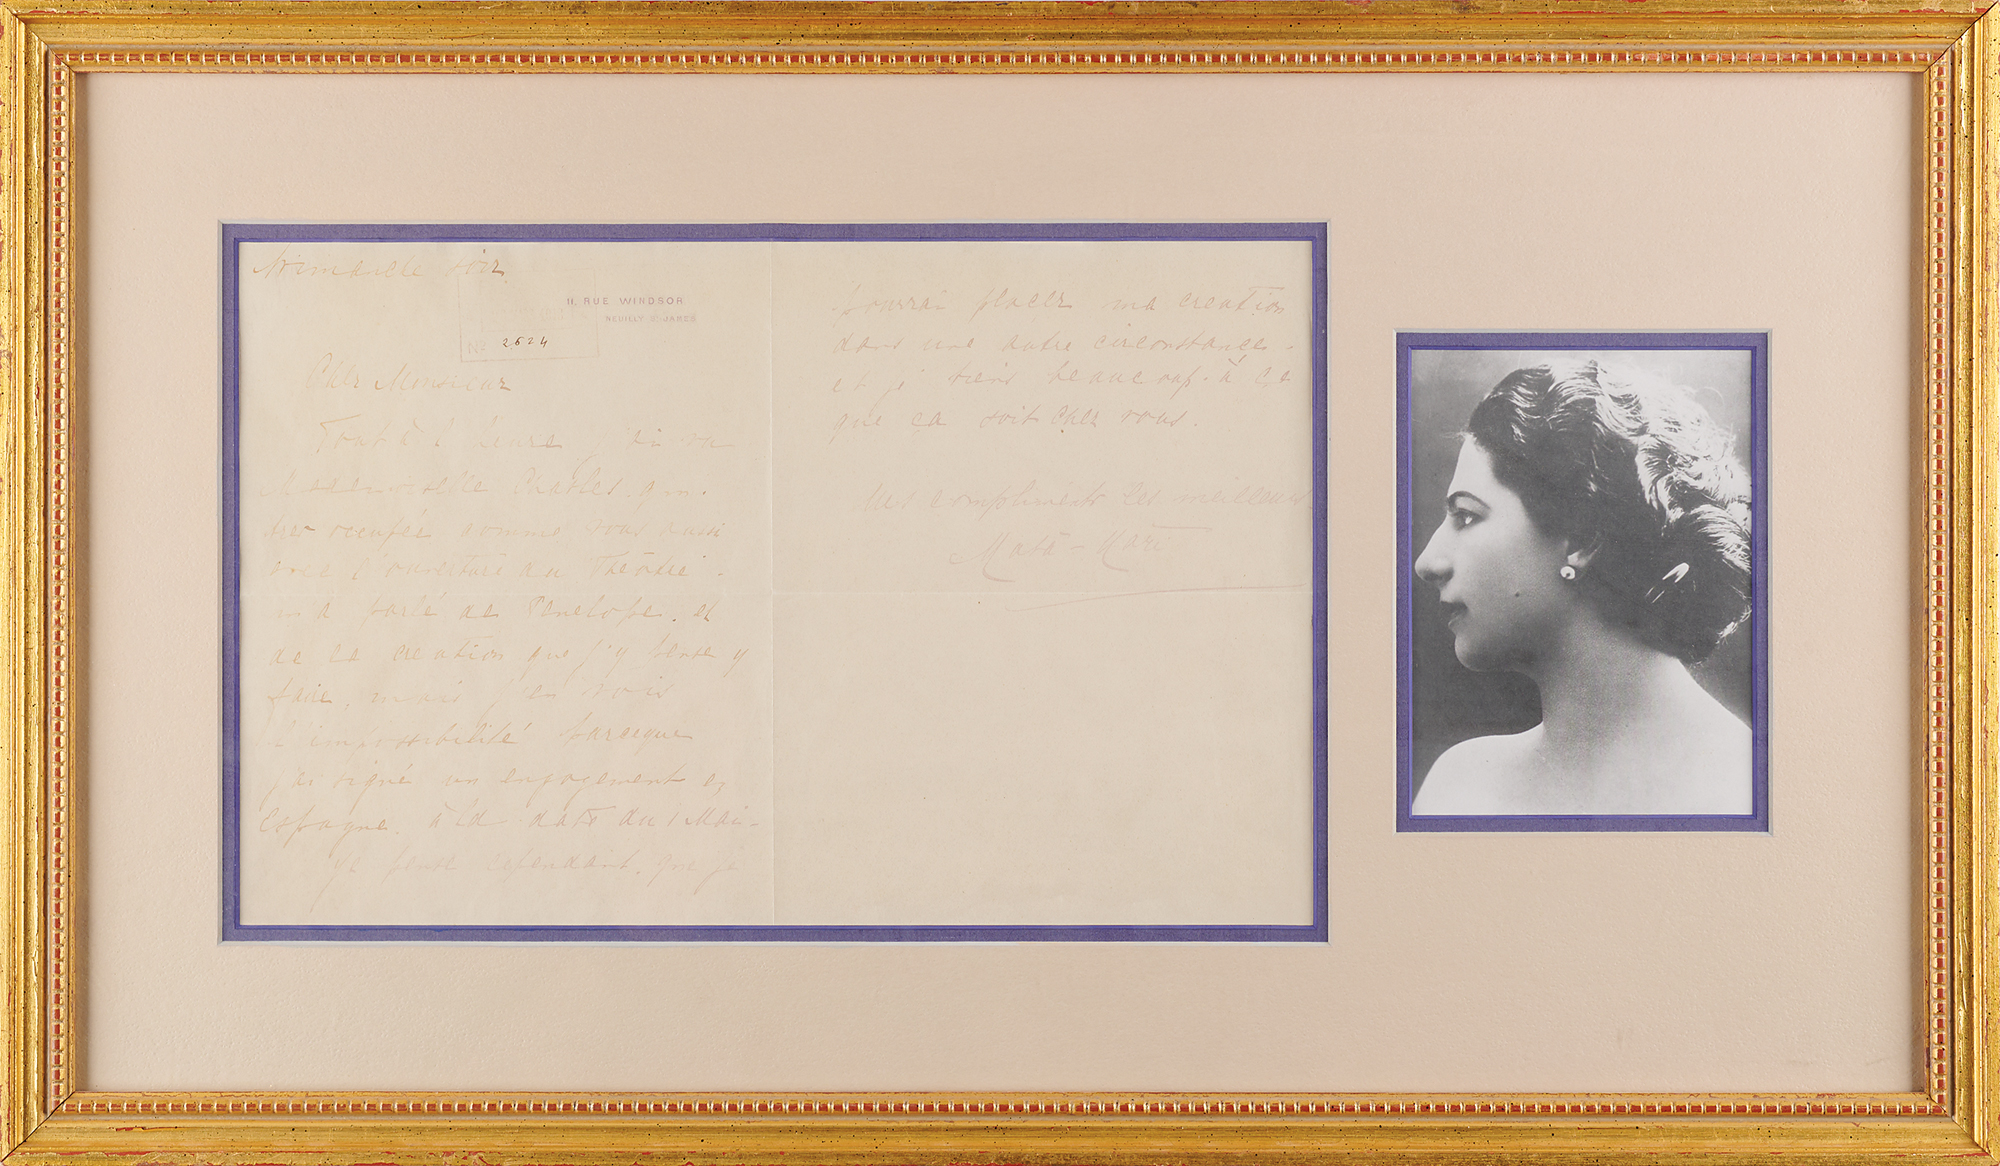 Dimanche soir
11, RUE WINDSOR
NEUILLY St JAMES
No 2624
Cher Monsieur
Tout à l heure j'ai vu
Mademoiselle Charles, qui
très occupée comme vous aussi
avec l ouverture du Théâtre -
m'a parlé de Penelope. et
de la creation que j'y pense y
faire, mais j'en vois
l'impossibilité parceque
j'ai signé un engagement en
Espagne. à la date du 1 Mai -
Je pense cependant, que je
pourrai placer ma creation
dans une autre circonstance -
et je tiens beaucoup - à ce
que ca soit chez vous.
Mes compliments les meilleurs
Mata-Hari